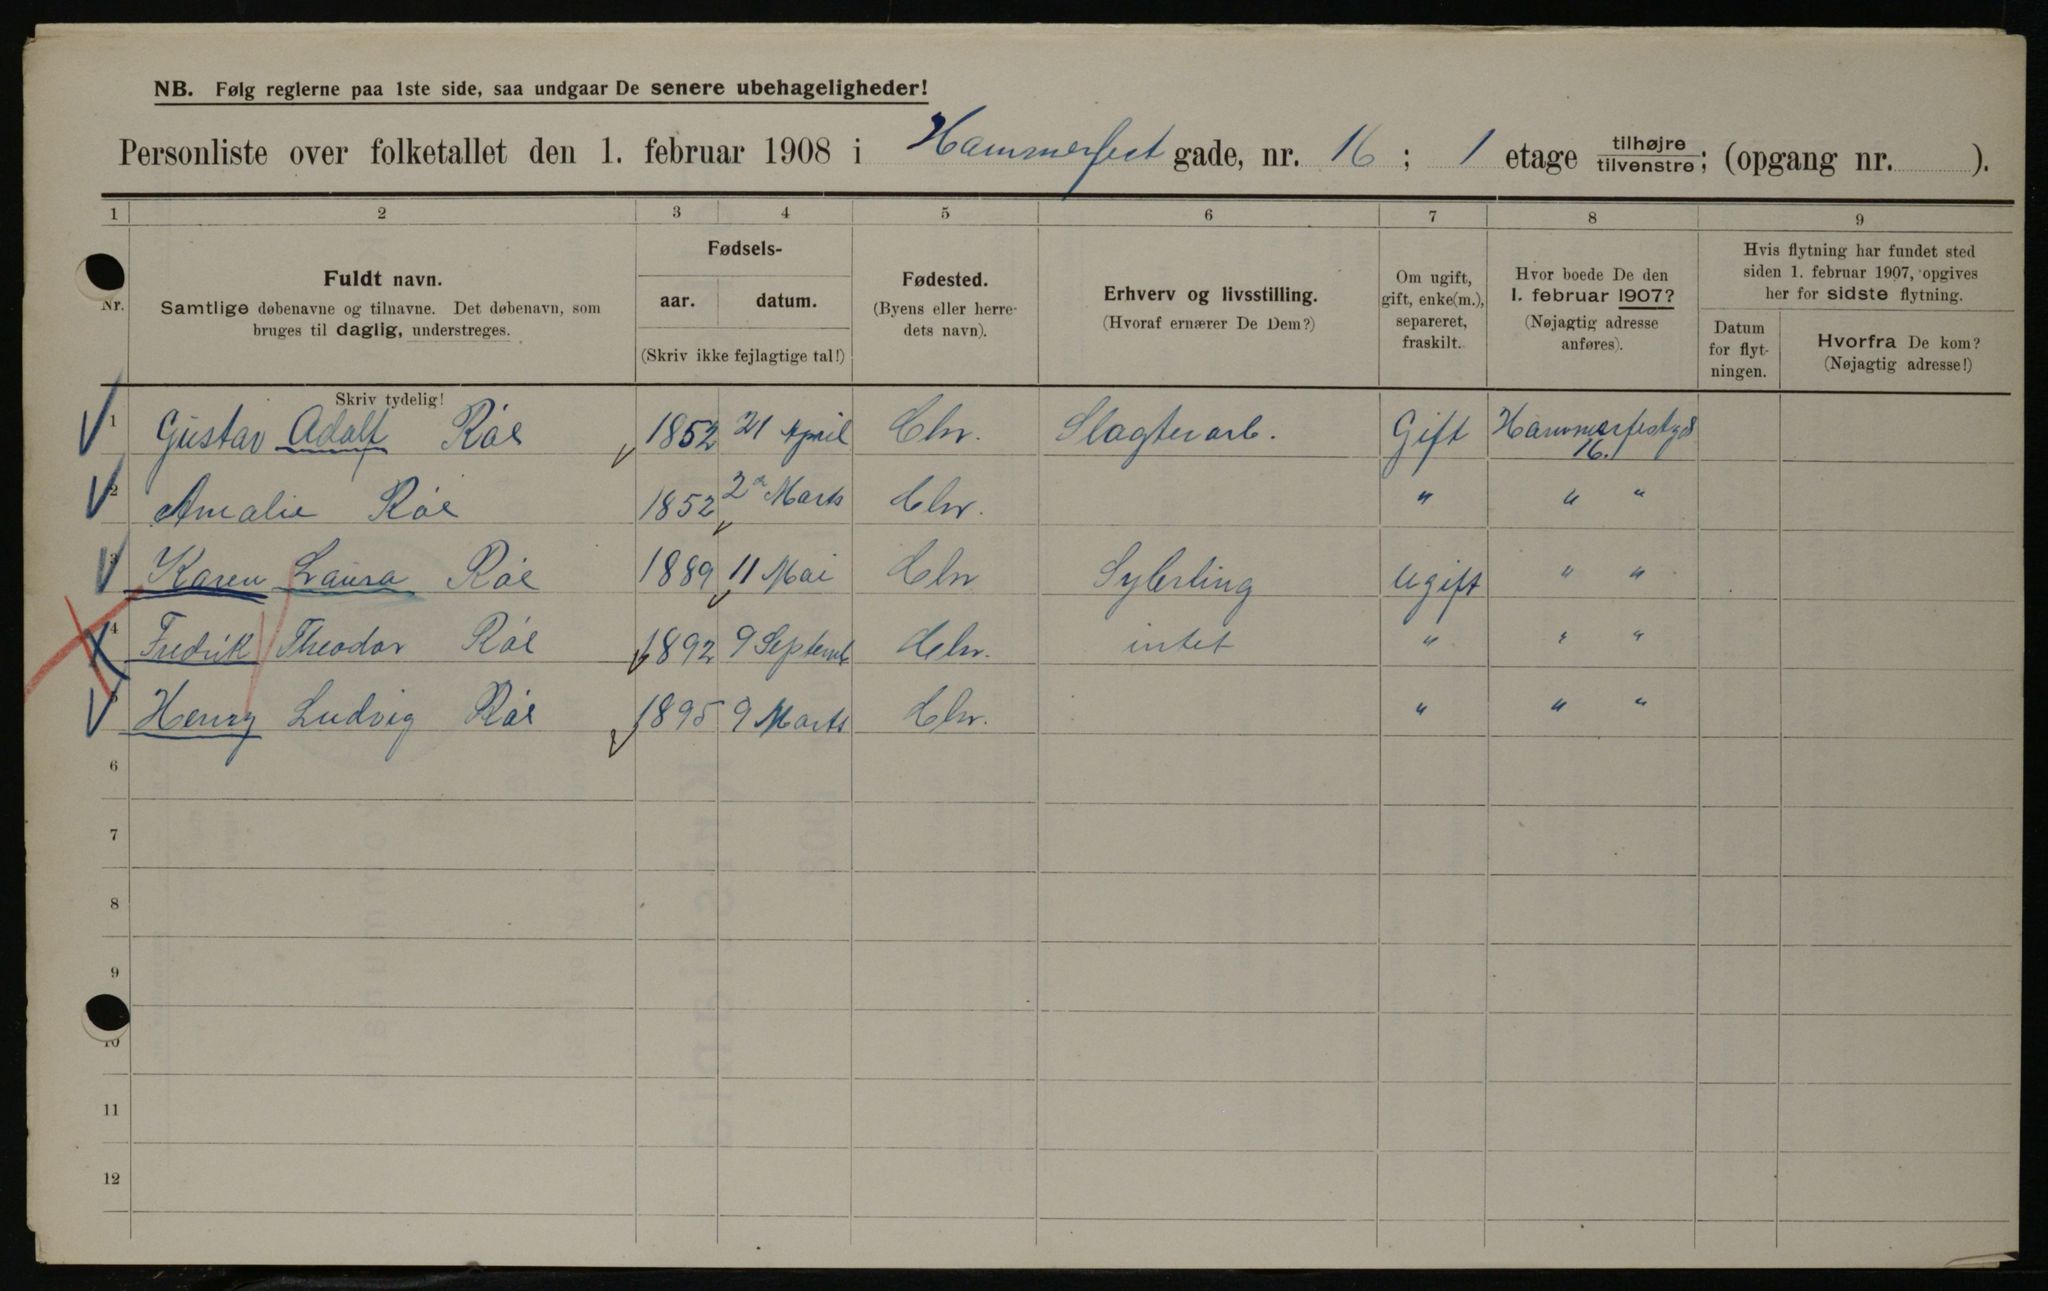 NB. Følg reglerne paa 1ste side, saa undgaar De senere ubehageligheder!
Personliste over folketallet den 1. februar 1908 i Hammerfest gade, nr. 16 ; 1 etage tilhøjre tilvenstre; (opgang nr. ).
1 2 3 4 5 6 7 8 9
Nr.
Fuldt navn.
Samtlige døbenavne og tilnavne. Det døbenavn, som
bruges til daglig, understreges.
Fødsels-
aar. datum.
(Skriv ikke fejlagtige tal!)
Fødested.
(Byens eller herre-
dets navn).
Erhverv og livsstilling.
(Hvoraf ernærer De Dem?)
Om ugift,
gift, enke(m.),
separeret,
fraskilt.
Hvor boede De den
1. februar 1907?
(Nøjagtig adresse
anføres).
Hvis flytning har fundet sted
siden 1. februar 1907, opgives
her for sidste flytning.
Datum
for flyt-
ningen.
Hvorfra De kom?
(Nøjagtig adresse!)
Skriv tydelig!
1 Gustav Adolf Röe 1852 21 April Chr. Slagterarb. Gift Hammerfestgd
16.
2 Amalie Röe 1852 2 Marts Chr. " " "
3 Karen Laura Röe 1889 11 Mai Chr Syerling Ugift " "
4 Fredrik Theodor Röe 1892 9 Septemb Chr. intet " " "
5 Henry Ludvig Röe 1895 9 Marts Chr. " " "
6
7
8
9
10
11
12